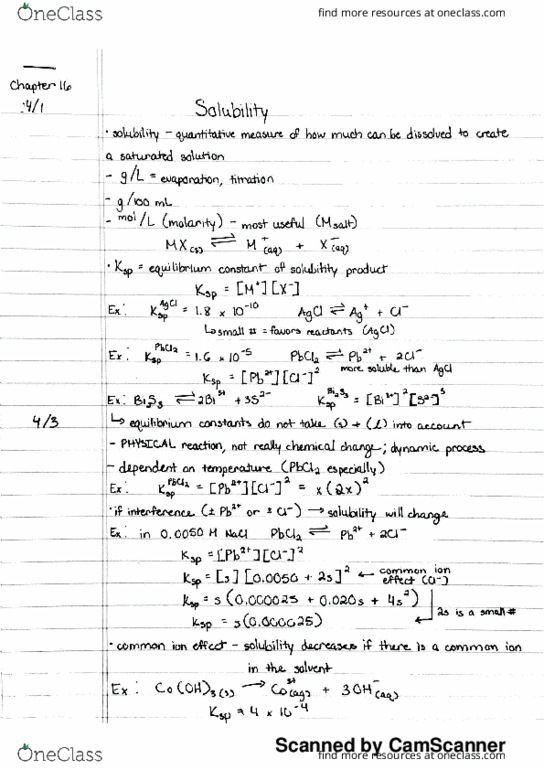 OneClass
find more resources at oneclass.com
Chapter 16
4/1
Solubility
· solubility – quantitative measure of how much can be dissolved to create
a saturated solution
- g/L = evaporation, titration
- g/100 mL
- mol/L (molarity) – most useful (Msalt)
MX(s) ⇌ M⁺(aq) + X⁻(aq)
· Ksp = equilibrium constant of solubility product
Ksp = [M⁺][X⁻]
Ex: Ksp^AgCl = 1.8 x 10⁻¹⁰ AgCl ⇌ Ag⁺ + Cl⁻
↳ small # = favors reactants (AgCl)
Ex: Ksp^PbCl₂ = 1.6 x 10⁻⁵ PbCl₂ ⇌ Pb²⁺ + 2Cl⁻
Ksp = [Pb²⁺][Cl⁻]² more soluble than AgCl
Ex: Bi₂S₃ ⇌ 2Bi³⁺ + 3S²⁻ Ksp^Bi₂S₃ = [Bi³⁺]²[S²⁻]³
4/3
↳ equilibrium constants do not take (s) + (l) into account
- PHYSICAL reaction, not really chemical change; dynamic process
- dependent on temperature (PbCl₂ especially)
Ex: Ksp^PbCl₂ = [Pb²⁺][Cl⁻]² = x(2x)²
· if interference (± Pb²⁺ or ± Cl⁻) → solubility will change
Ex: in 0.0050 M NaCl PbCl₂ ⇌ Pb²⁺ + 2Cl⁻
Ksp = [Pb²⁺][Cl⁻]²
Ksp = [s][0.0050 + 2s]² ← common ion effect (Cl⁻)
Ksp = s(0.000025 + 0.020s + 4s²)
2s is a small #
Ksp = s(0.000025)
· common ion effect – solubility decreases if there is a common ion
in the solvent
Ex: Co(OH)₃(s) → Co³⁺(aq) + 3OH⁻(aq)
Ksp = 4 x 10⁻⁴
Scanned by CamScanner
OneClass
find more resources at oneclass.com